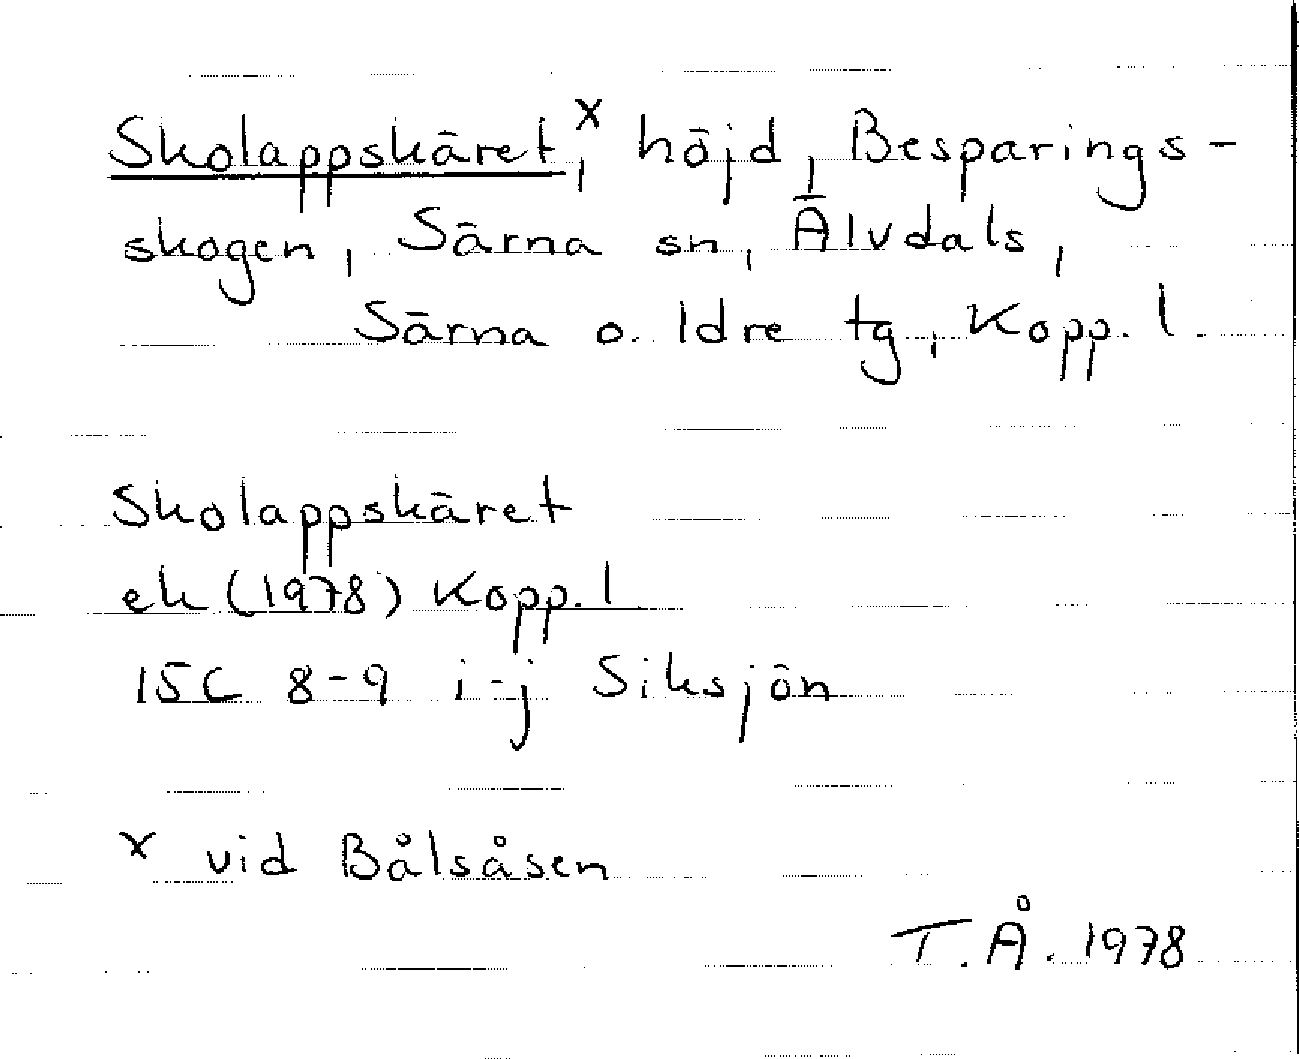 Skolappskäret,ˣ höjd, Besparings-
skogen, Särna sn, Älvdals,
Särna o. Idre tg, Kopp. l.
Skolappskäret
ek (1978) Kopp. l
15C 8-9 i-j Siksjön
x vid Bålsåsen
T.Å. 1978